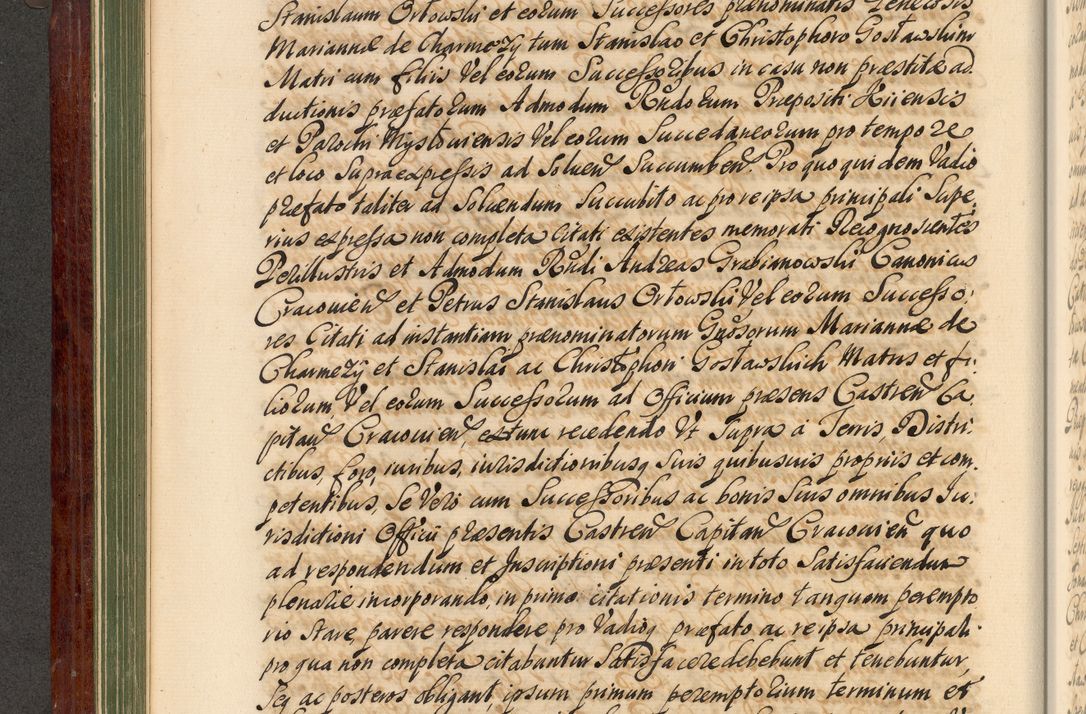 Stanislaum Orłowski et eorum Successores prænominatis Generosis
Mariannæ de Charmezy tum Stanislao et Christophoro Gostawskim
Matri cum filiis Vel eorum Successoribus in casu non præstitæ ad
ductionis præfatorum Admodum Rndorum Præpositi Kiiensis
et Parochi Mystoviensis Vel eorum Succedaneorum pro tempore
et loco Supraexpressis ad Solven Succumben. Pro quo quidem Vadio
præfato taliter ad Solvendum Succubito ac pro re ipsa principali Supe,
rius expressa non completa Citati existentes memorati Recognoscentes
Perillustris et Admodum Rndi Andreas Grabianowski Canonicus
Cracovien et Petrus Stanislaus Orłowski Vel eorum Successo:
res Citati ad instantiam prænominatorum Gnosorum Mariannæ de
Charmezy et Stanislai ac Christophori Gostawskich Matris et fi:
liorum, Vel eorum Successorum ad Officium præsens Castren Ca,
pitan Cracovien, extunc recedendo Ut Supra a Terris, Distri:
ctibus, foro, iuribus, iurisdictionibusq Suis quibusuis propriis et com,
petentibus, Se Vero cum Successoribus ac bonis Suis omnibus Iu:
risdictioni Officii præsentis Castren Capitan Cracovien quo
ad respondendum et Inscriptioni præsenti in toto Satisfaciendum
plenarie incorporando, in primo citationis termino tanquam perempto
rio stare, parere respondere pro Vadioq præfato ac re ipsa principali
pro qua non completa citabuntur Satisfacere debebunt et tenebuntur,
Seq ac posteros obligant, ipsum primum peremptorium terminum et